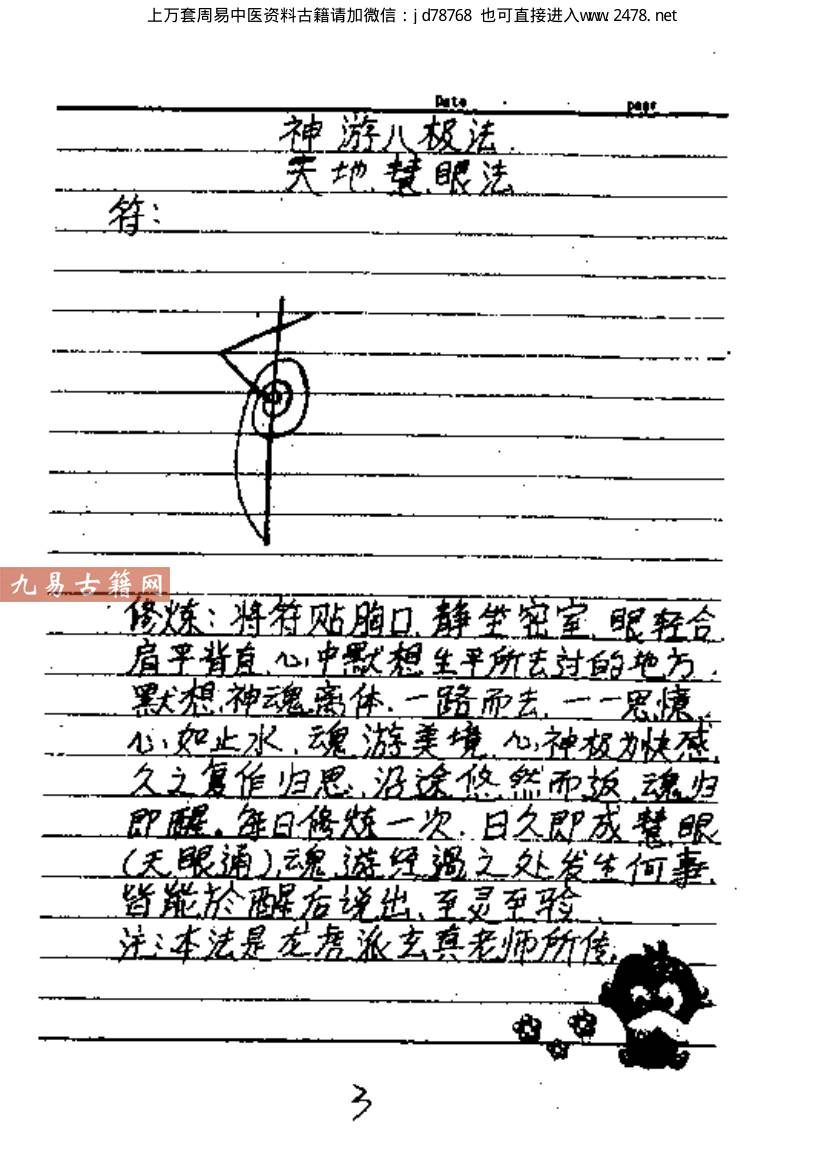 上万套周易中医资料古籍请加微信：jd78768 也可直接进入www.2478.net
Date
page
神游八极法
天地慧眼法
符：
九易古籍网
修炼：将符贴胸口，静坐密室，眼轻合
肩平背直，心中默想生平所去过的地方，
默想神魂离体，一路而去，一一思憶，
心如止水，魂游美境，心神极为快感，
久之复作归思，沿途悠然而返，魂归
即醒。每日修炼一次，日久即成慧眼
(天眼通)，魂游经过之处发生何事，
皆能於醒后说出，至灵至验，
注：本法是龙虎派玄真老师所传，
3